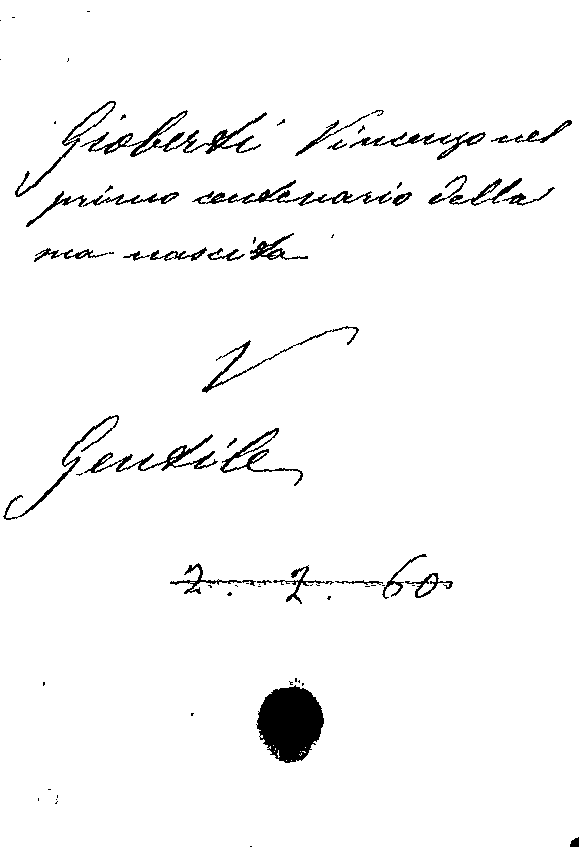 Gioberti Vincenzo nel
primo centenario della
sua nascita
V
Gentile
2. 2. 60